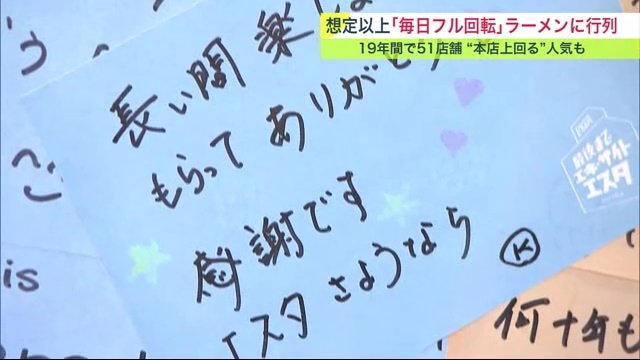 想定以上「毎日フル回転」ラーメンに行列
19年間で51店舗 “本店上回る”人気も
長い間 楽し
もらって ありがとう
感謝です
エスタ さようなら
K
エキサイト
エスタ
is
何十年も